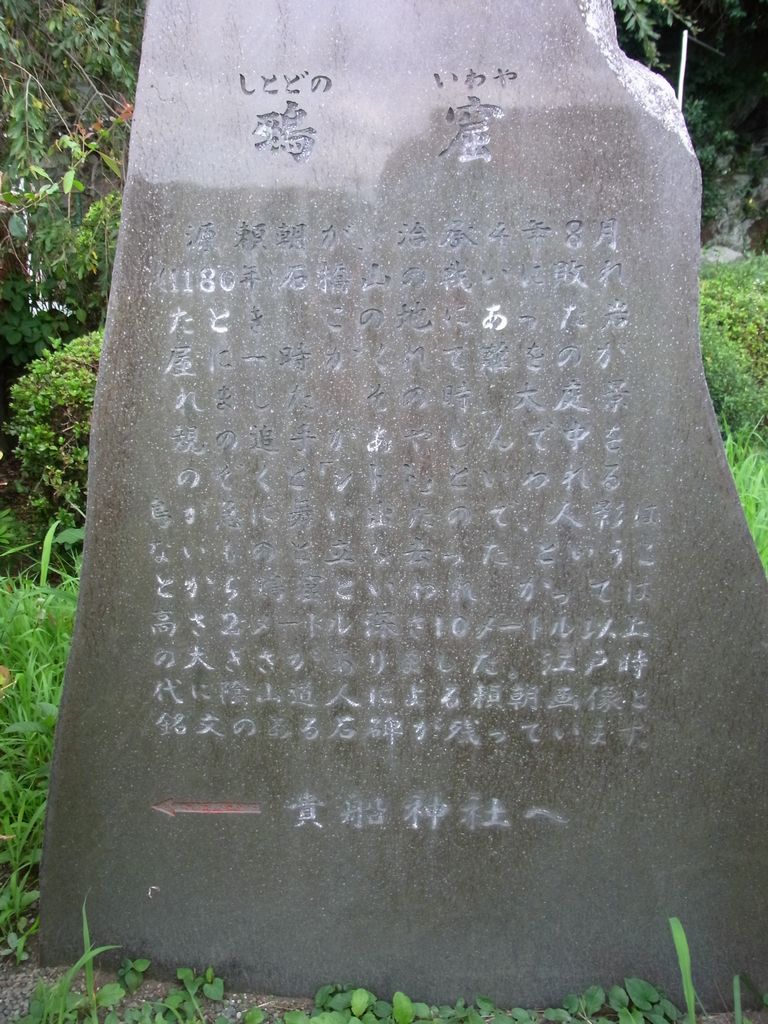 しとどの いわや
鵐 窟
源頼朝が、治承4年8月
(1180年)石橋山の戦いに敗れ
たときこの地にあった岩
屋に一時かくれて難をのが
れました。その時、大庭景
親の追手が、あやしんで中を
のぞくと「シトド」といわれる
鳥が急に舞い出たので、人影は
ないものと立ち去ったというこ
と がっては
高さ2メートル、深さ10メートル以上
の大きさがありました。江戸時
代に陰山道人による頼朝画像と
銘文のある石碑が残っています。
← 貴船神社へ